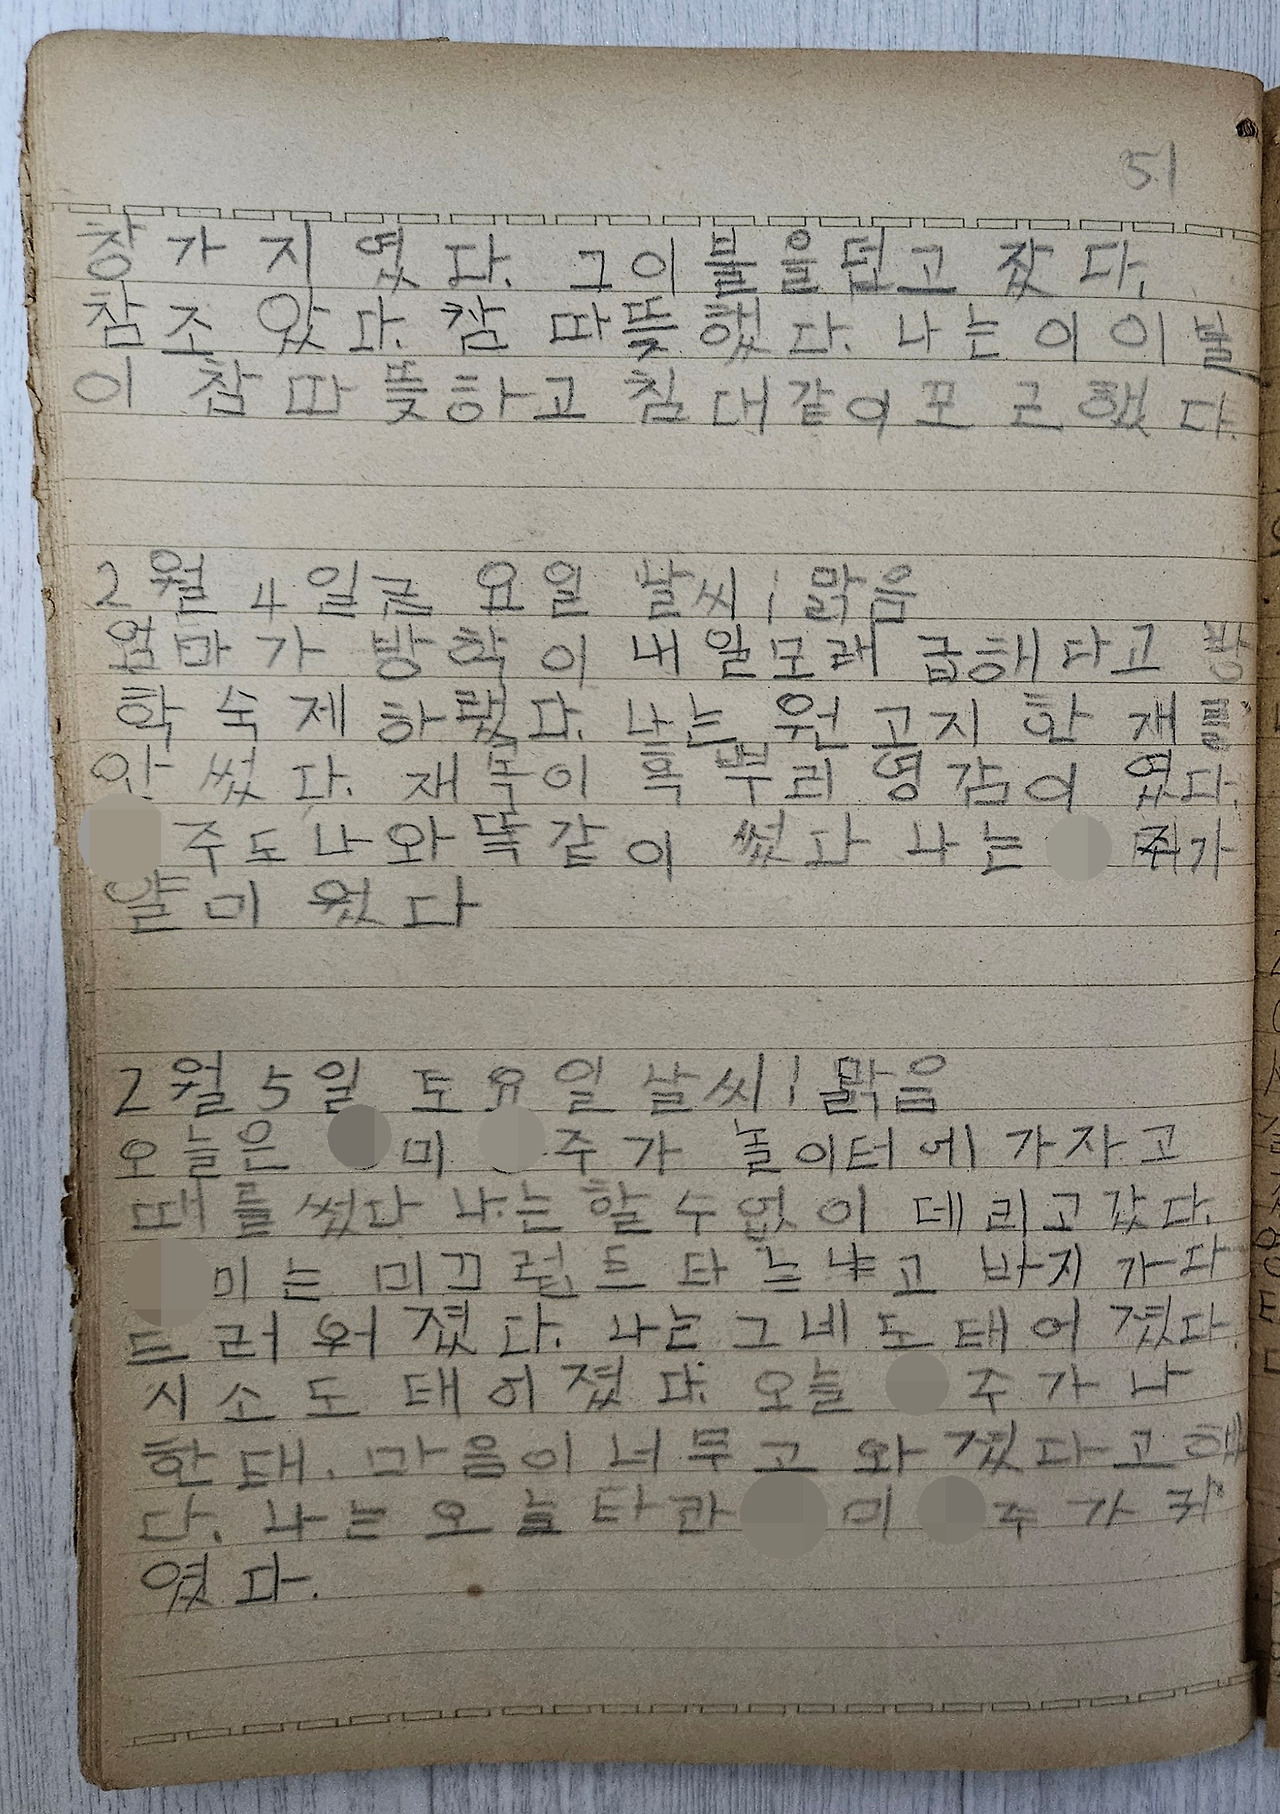 51
창가지였다. 그이불을덮고 잤다.
참조았다. 참 따뜻했다. 나는이이불
이 참따뜻하고 침대같이포근했다.
2월 4일금요일 날씨 | 맑음
엄마가 방학이 내일모래 급해다고 방
학숙제하랬다. 나는 원고지 한재를
안썼다. 재목이 혹뿌리영감이 였다.
주도나와똑같이 썼다 나는 주가
얄미웠다
2월5일 토요일 날씨 | 맑음
오늘은 미 주가 놀이터에 가자고
때를썼다 나는할수없이 데리고갔다.
미는 미끄럼트타는냐고 바지가다
드러워졌다. 나는그네도태어줬다
시소도 태어줬다. 오늘 주가나
한태. 마음이너무고와젔다고해
다. 나는오늘 미 주가귀
였다.